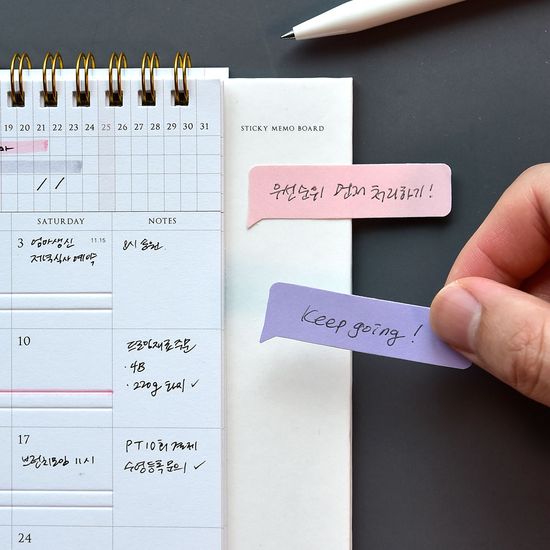 19 20 21 22 23 24 25 26 27 28 29 30 31
STICKY MEMO BOARD
우선순위 먼저 처리하기!
Keep going!
SATURDAY NOTES
3 엄마생신 11.15
저녁식사 예약
8시
10
드로잉재료 주문
· 4B
· 220g 화지 ✓
17
브런치모임 11시
PT 10회 결제
수영등록문의 ✓
24